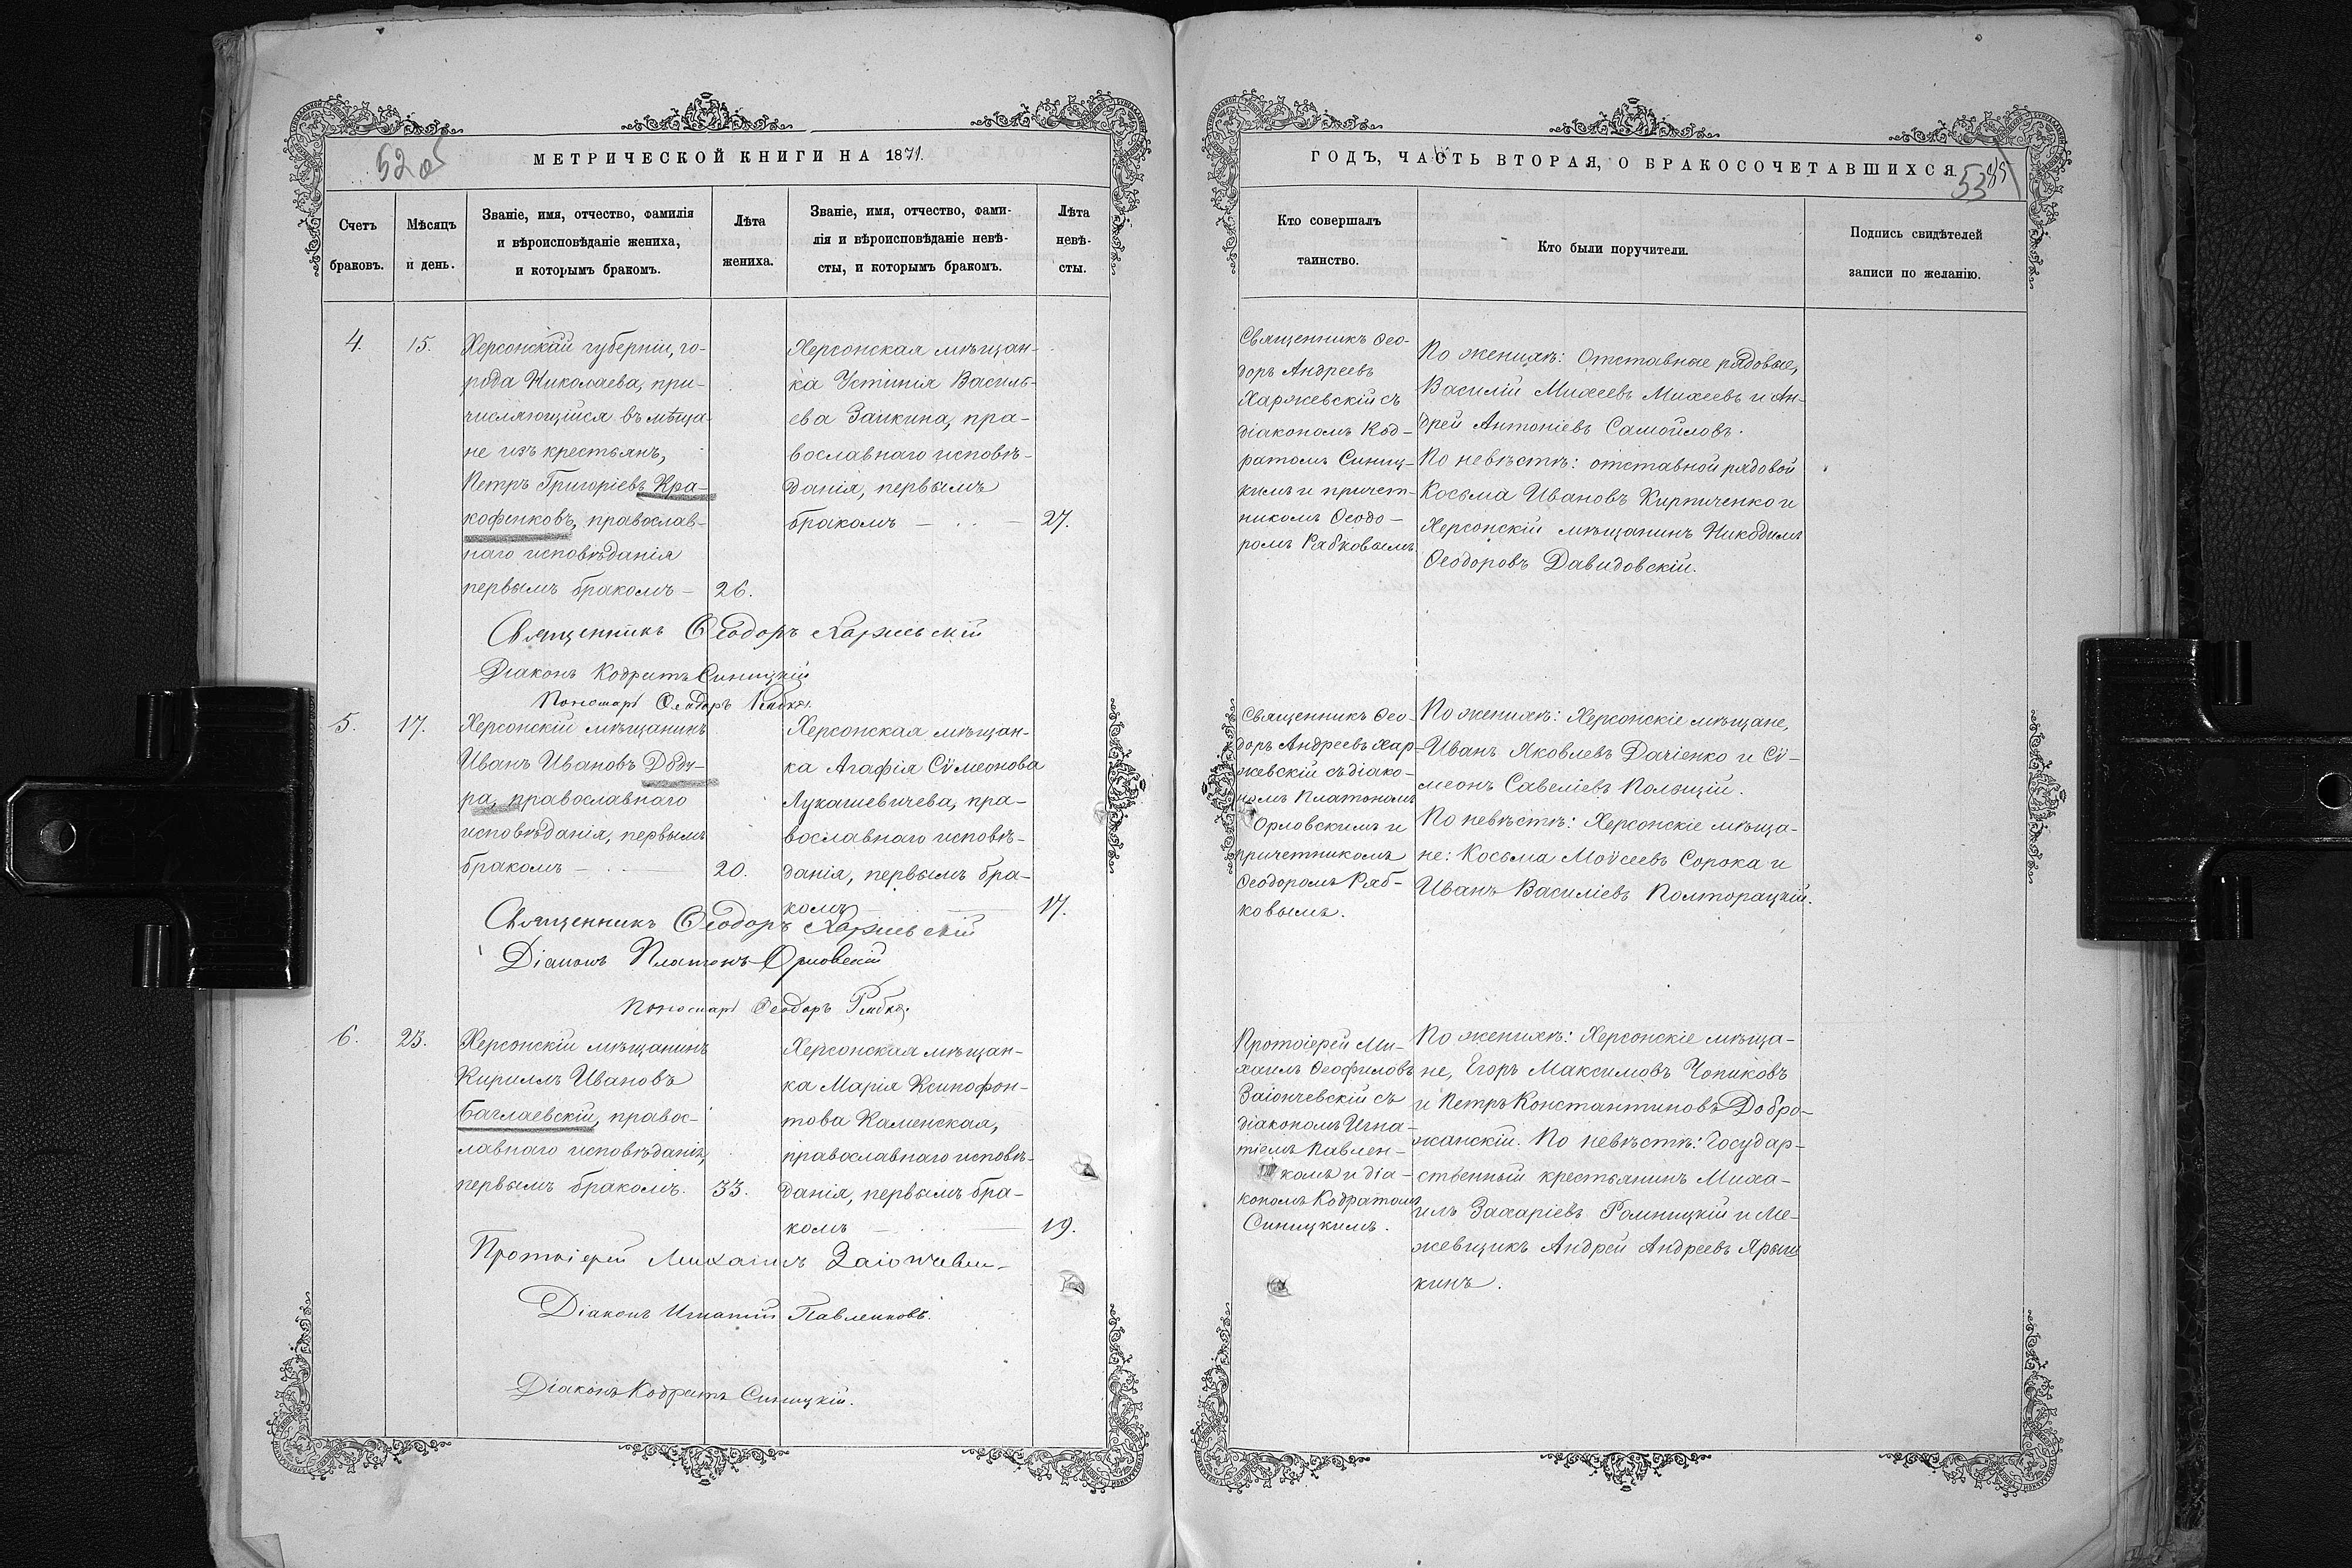 52об
МЕТРИЧЕСКОЙ КНИГИ НА 1871.
Счетъ
браковъ.
Мѣсяцъ
и день.
Званіе, имя, отчество, фамилія
и вѣроисповѣданіе жениха,
и которымъ бракомъ.
Лѣта
жениха.
Званіе, имя, отчество, фами-
лія и вѣроисповѣданіе невѣ-
сты, и которымъ бракомъ.
Лѣта
невѣ-
сты.
4.
15.
Херсонскай губерніи, го-
рода Николаева, при-
числяющійся въ мѣща-
не изъ крестьянъ,
Петръ Григоріевъ Кра-
кофенковъ, православ-
наго исповѣданія
первымъ бракомъ – 26.
Херсонская мѣщан-
ка Устинія Василь-
ева Заикина, пра-
вославнаго исповѣ-
данія, первымъ
бракомъ – 27.
Священникъ Ѳеодоръ Харжевскій
Діаконъ Кодратъ Синицкій
Пономарь Ѳеодоръ
5.
17.
Херсонскій мѣщанинъ
Иванъ Ивановъ
ра, православнаго
исповѣданія, первымъ
бракомъ – 20.
Херсонская мѣщан-
ка Агафія Сѵмеонова
Лукашевичева, пра-
вославнаго исповѣ-
данія, первымъ бра-
комъ – 17.
Священникъ Ѳеодоръ Харжевскій
Діаконъ Платонъ Орловскій
Пономарь Ѳеодоръ
6.
23.
Херсонскій мѣщанинъ
Кириллъ Ивановъ
Баглаевскій, правос-
лавнаго исповѣданія,
первымъ бракомъ. 33.
Херсонская мѣщан-
ка Марія Ксинофон-
това Каменская,
православнаго исповѣ-
данія, первымъ бра-
комъ – 19.
Протоіерей Михаилъ
Діаконъ Игнатій Павленковъ.
Діаконъ Кодратъ Синицкій.
ГОДЪ, ЧАСТЬ ВТОРАЯ, О БРАКОСОЧЕТАВШИХСЯ
53
85
Кто совершалъ
таинство.
Кто были поручители.
Подпись свидѣтелей
записи по желанію.
Священникъ Ѳео-
доръ Андреевъ
Харжевскій съ
діакономъ Код-
ратомъ Синиц-
кимъ и причет-
никомъ Ѳеодо-
ромъ Рябковымъ.
По женихѣ: Отставные рядовые,
Василій Михеевъ Михеевъ и Ан-
дрей Антоніевъ Самойловъ.
По невѣстѣ: отставной рядовой
Косьма Ивановъ Кирпиченко и
Херсонскій мѣщанинъ Никодимъ
Ѳеодоровъ Давидовскій.
Священникъ Ѳео-
доръ Андреевъ Хар-
жевскій съ діако-
номъ Платономъ
Орловскимъ и
причетникомъ
Ѳеодоромъ Ряб-
ковымъ.
По женихѣ: Херсонскіе мѣщане,
Иванъ Яковлевъ Даченко и Сѵ-
меонъ Савеліевъ Полящій.
По невѣстѣ: Херсонскіе мѣща-
не: Косьма Моѵсеевъ Сорока и
Иванъ Василіевъ Полторацкій.
Протоіерей Ми-
хаилъ Ѳеофиловъ
Заіончевскій съ
діакономъ Игна-
тіемъ Павлен-
комъ и діа-
кономъ Кодратомъ
Синицкимъ.
По женихѣ: Херсонскіе мѣща-
не, Егоръ Максимовъ Чопиковъ
и Петръ Константиновъ Добро-
жанскій. По невѣстѣ: Государ-
ственный крестьянинъ Миха-
илъ Захаріевъ Ромницкій и Ме-
жевщикъ Андрей Андреевъ Ярыш
кинъ.